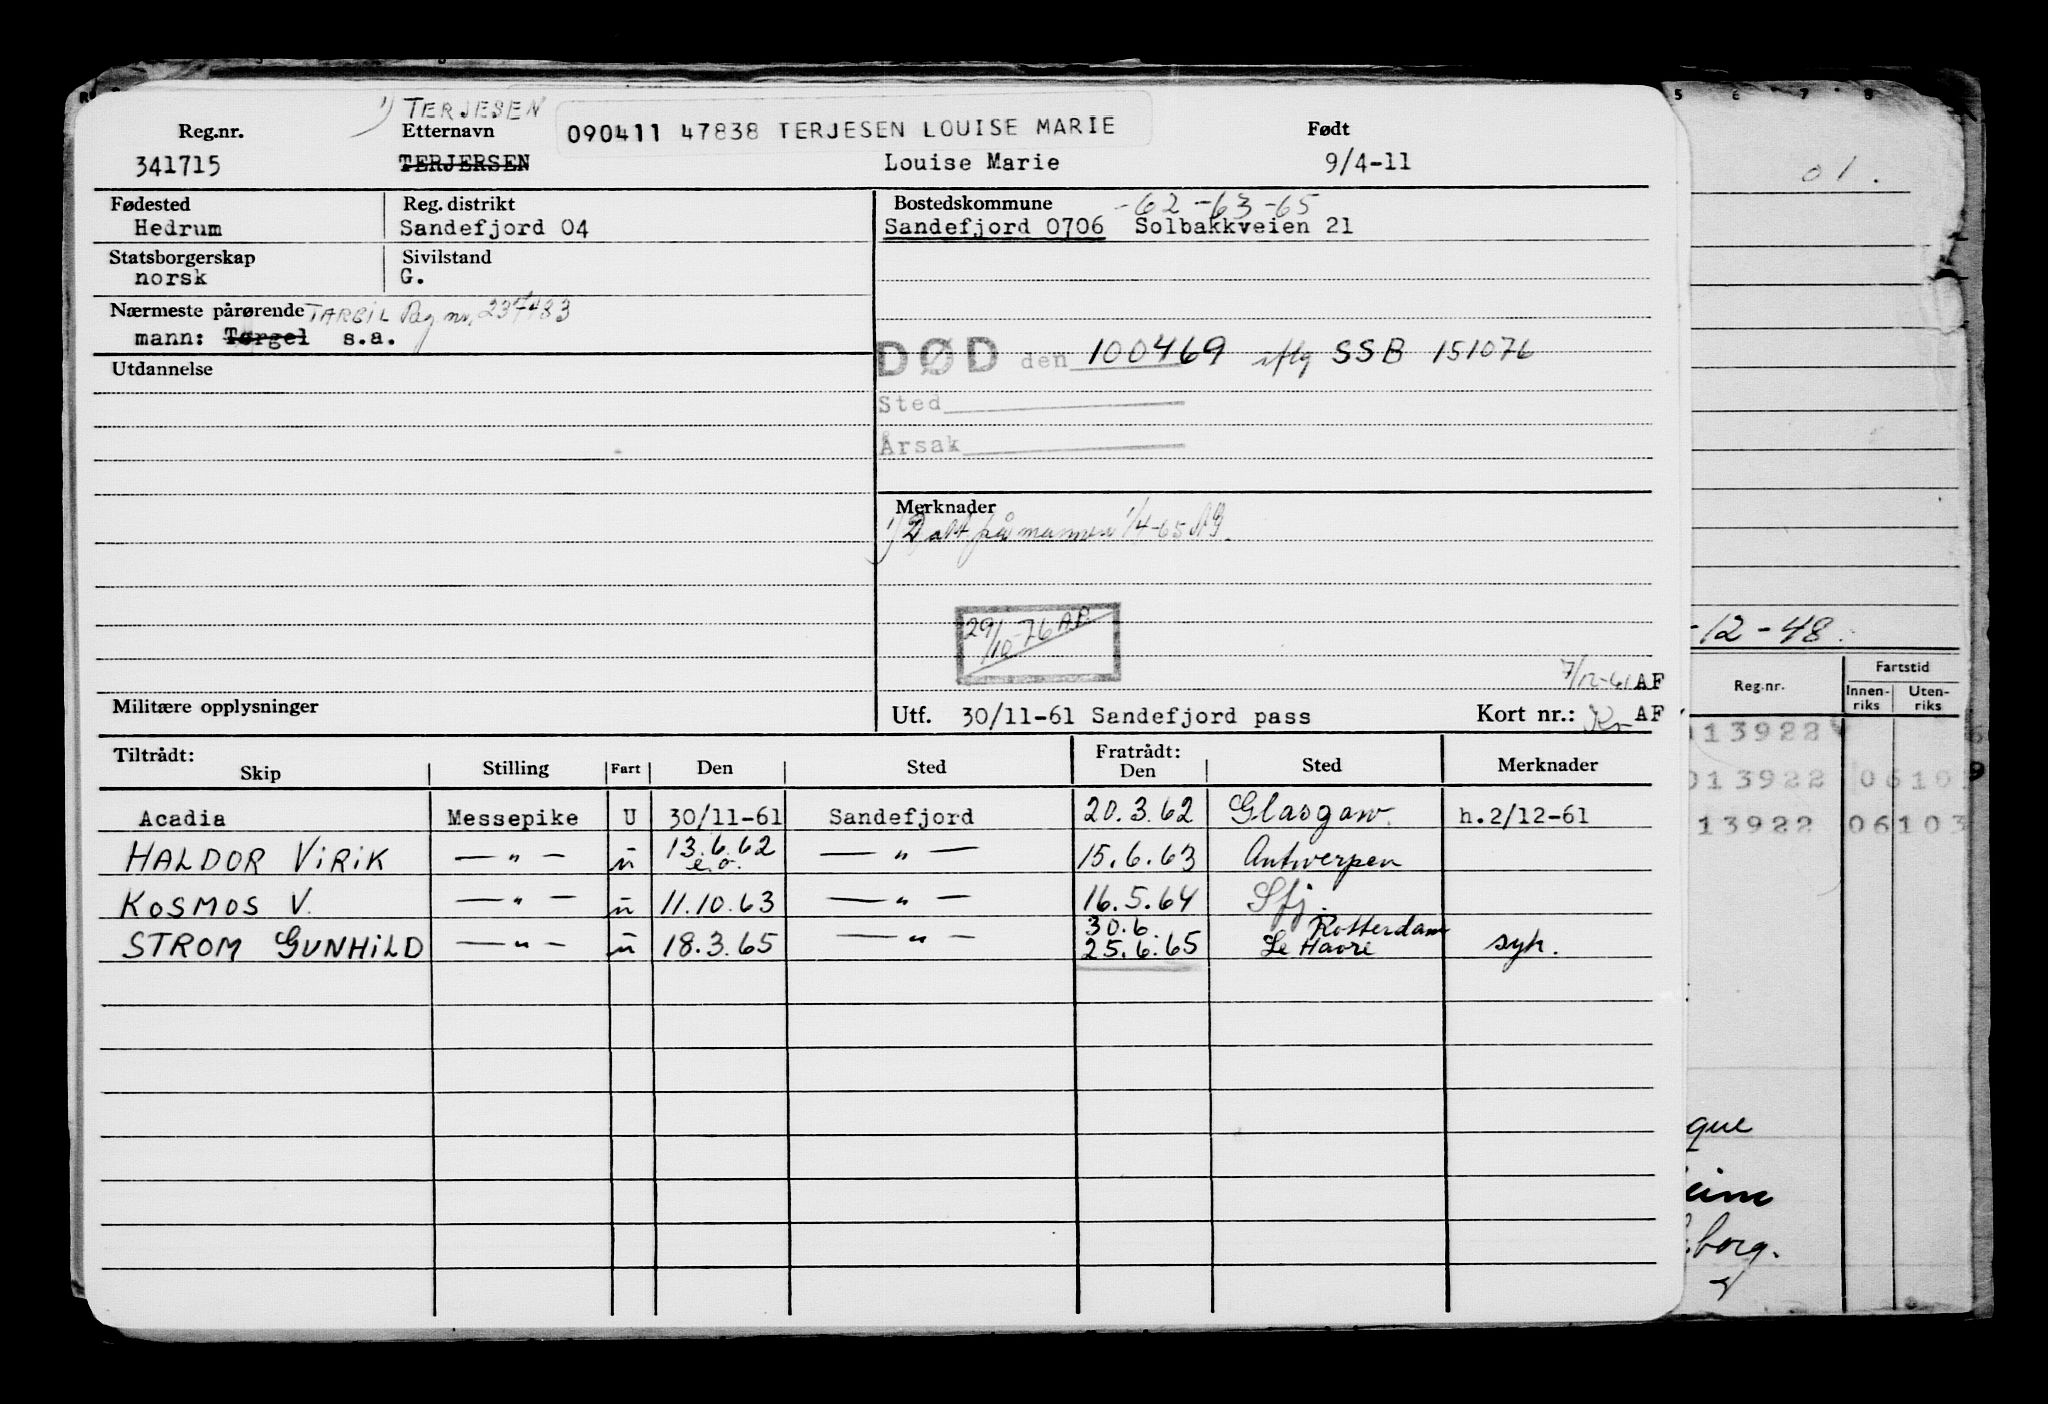 1) TERJESEN
Reg.nr. Etternavn 090411 47838 TERJESEN LOUISE MARIE Født
341715 TERJERSEN Louise Marie 9/4-11
Fødested Reg. distrikt Bostedskommune -62 -63 -65
Hedrum Sandefjord 04 Sandefjord 0706 Solbakkveien 21
Statsborgerskap Sivilstand
norsk G.
Nærmeste pårørende TARGIL Reg nr. 237483
mann: Tørgel s.a.
DØD den 100469 iflg SSB 151076
Utdannelse
Sted
Årsak
Merknader
1) D att på mannen 1/4-65 AG.
29/10-76 A.P.
7/12-61 AF
Militære opplysninger Utf. 30/11-61 Sandefjord pass Kort nr.: Kr AF
Tiltrådt: Fratrådt:
Skip Stilling Fart Den Sted Den Sted Merknader
Acadia Messepike U 30/11-61 Sandefjord 20.3.62 Glasgow. h.2/12-61
HALDOR VIRIK — " — u 13.6.62 e.o. — " — 15.6.63 Antwerpen
KOSMOS V. — " — u 11.10.63 — " — 16.5.64 Sfj.
30.6. Rotterdam
STROM GUNHILD — " — u 18.3.65 — " — 25.6.65 Le Havre syk.
5 6 7 8
01.
-12-48.
Reg.nr. Fartstid
Innen-riks Uten-riks
013922
013922 0610
13922 06103
que
eim
borg.